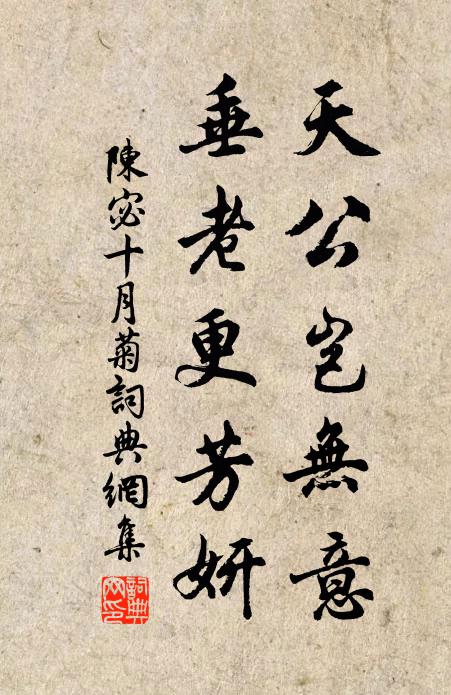 天公豈無意
垂老更芳妍
陳宓十月菊詞典網集
詞典網印